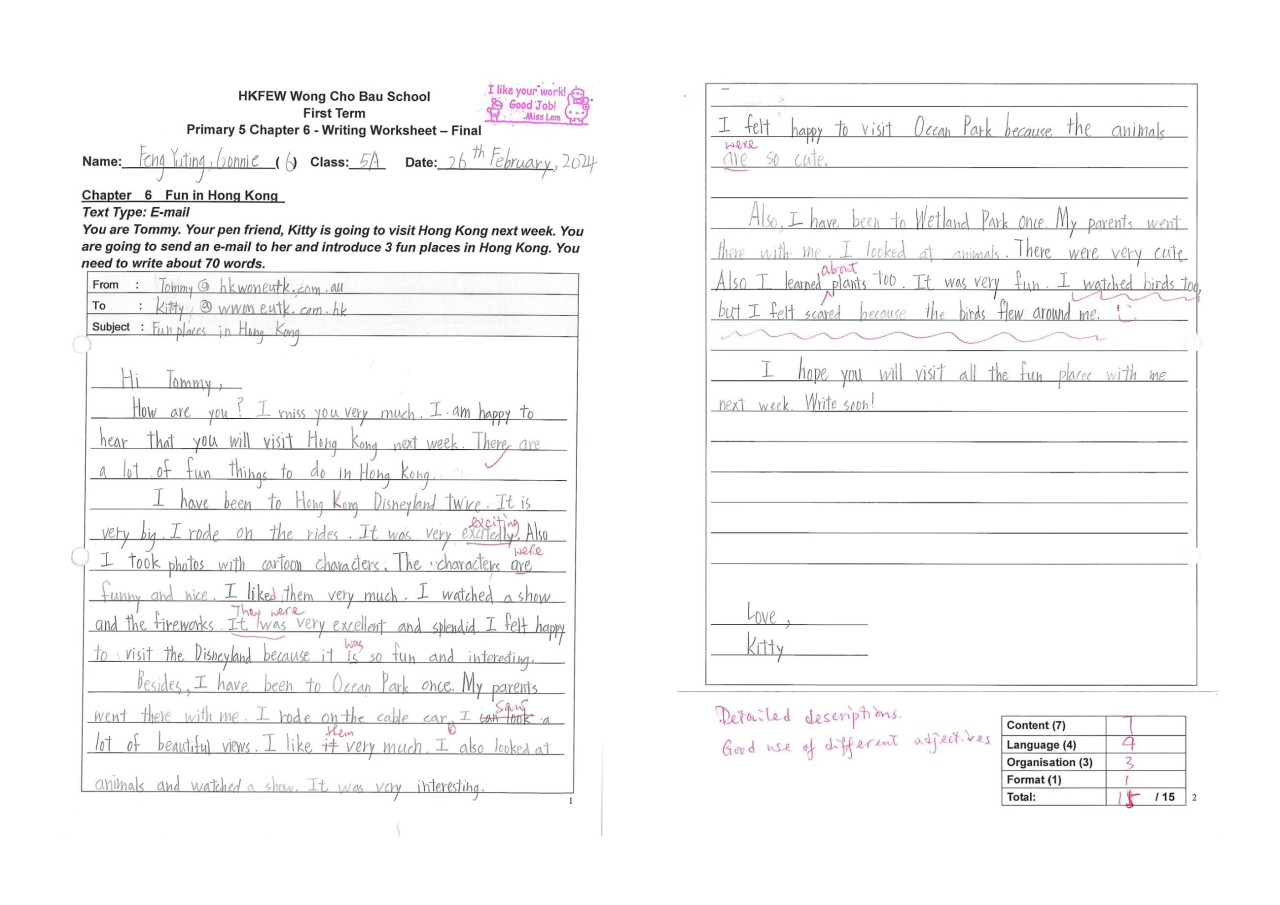 HKFEW Wong Cho Bau School
First Term
Primary 5 Chapter 6 - Writing Worksheet – Final
I like your work!
Good Job!
-Miss Lam
Name: Feng Yuting, Gonnie ( 6 ) Class: 5A Date: 26th February, 2024
Chapter 6 Fun in Hong Kong
Text Type: E-mail
You are Tommy. Your pen friend, Kitty is going to visit Hong Kong next week. You
are going to send an e-mail to her and introduce 3 fun places in Hong Kong. You
need to write about 70 words.
From : Tommy @ hkwoneutk.com.au
To : Kitty @ wwoneutk.com.hk
Subject : Fun places in Hong Kong
Hi Tommy,
How are you? I miss you very much. I am happy to
hear that you will visit Hong Kong next week. There are
a lot of fun things to do in Hong Kong.
I have been to Hong Kong Disneyland twice. It is
exciting
very big. I rode on the rides. It was very excitedly. Also
were
I took photos with cartoon characters. The characters are
funny and nice. I liked them very much. I watched a show
They were
and the fireworks. It was very excellent and splendid. I felt happy
was
to visit the Disneyland because it is so fun and interesting.
Besides, I have been to Ocean Park once. My parents
saw
went there with me. I rode on the cable car. I can look a
them
lot of beautiful views. I like it very much. I also looked at
animals and watched a show. It was very interesting.
1
I felt happy to visit Ocean Park because the animals
were
are so cute.
Also, I have been to Wetland Park once. My parents went
there with me. I looked at animals. There were very cute.
about
Also I learned plants too. It was very fun. I watched birds too,
but I felt scared because the birds flew around me.
I hope you will visit all the fun places with me
next week. Write soon!
Love,
Kitty
Detailed descriptions.
Good use of different adjectives
Content (7) 7
Language (4) 4
Organisation (3) 3
Format (1) 1
Total: 15 / 15
2